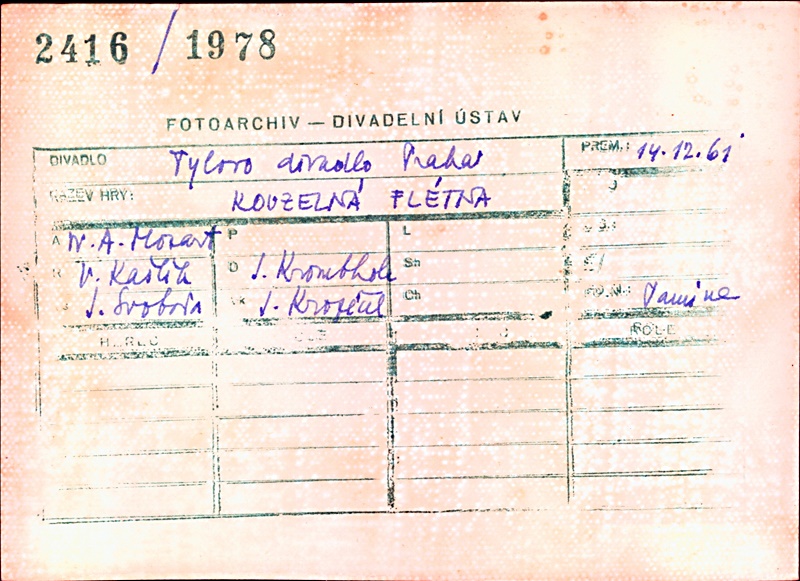 2416 / 1978
FOTOARCHIV — DIVADELNÍ ÚSTAV
DIVADLO Tylovo divadlo Praha PREM.: 14.12.61
NÁZEV HRY: KOUZELNÁ FLÉTNA
A W. A. Mozart P L
R V. Kašlík D J. Krombholc Sh
J. Svoboda Vk J. Kropáček Ch Pamina
HEREC ROLE